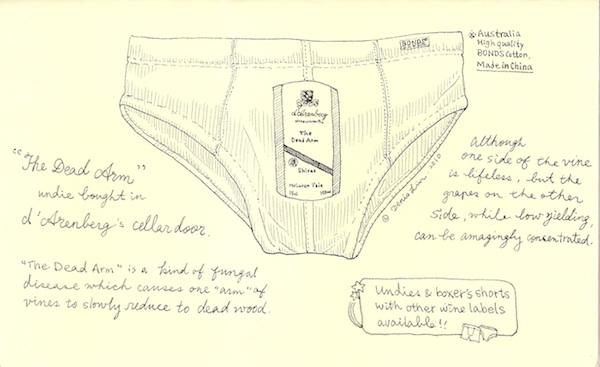 ※ Australia
High quality
BONDS Cotton,
Made in China
BONDS
d'Arenberg
The
Dead Arm
Shiraz
McLaren Vale
© 2010
"The Dead Arm"
undie bought in
d'Arenberg's cellar door.
Although
one side of the vine
is lifeless, but the
grapes on the other
side, while low yielding,
can be amazingly concentrated.
"The Dead Arm" is a kind of fungal
disease which causes one "arm" of
vines to slowly reduce to dead wood.
Undies & boxer's shorts
with other wine labels
available!!